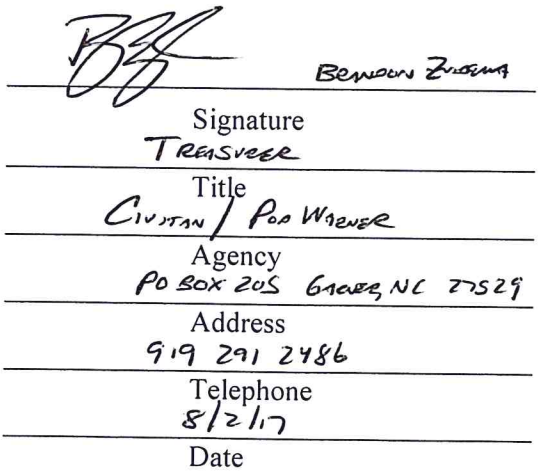 Brandon Zuidema
Signature
Treasurer
Title
Civitan / Pop Warner
Agency
PO Box 205 Garner, NC 27529
Address
919 291 2486
Telephone
8/2/17
Date